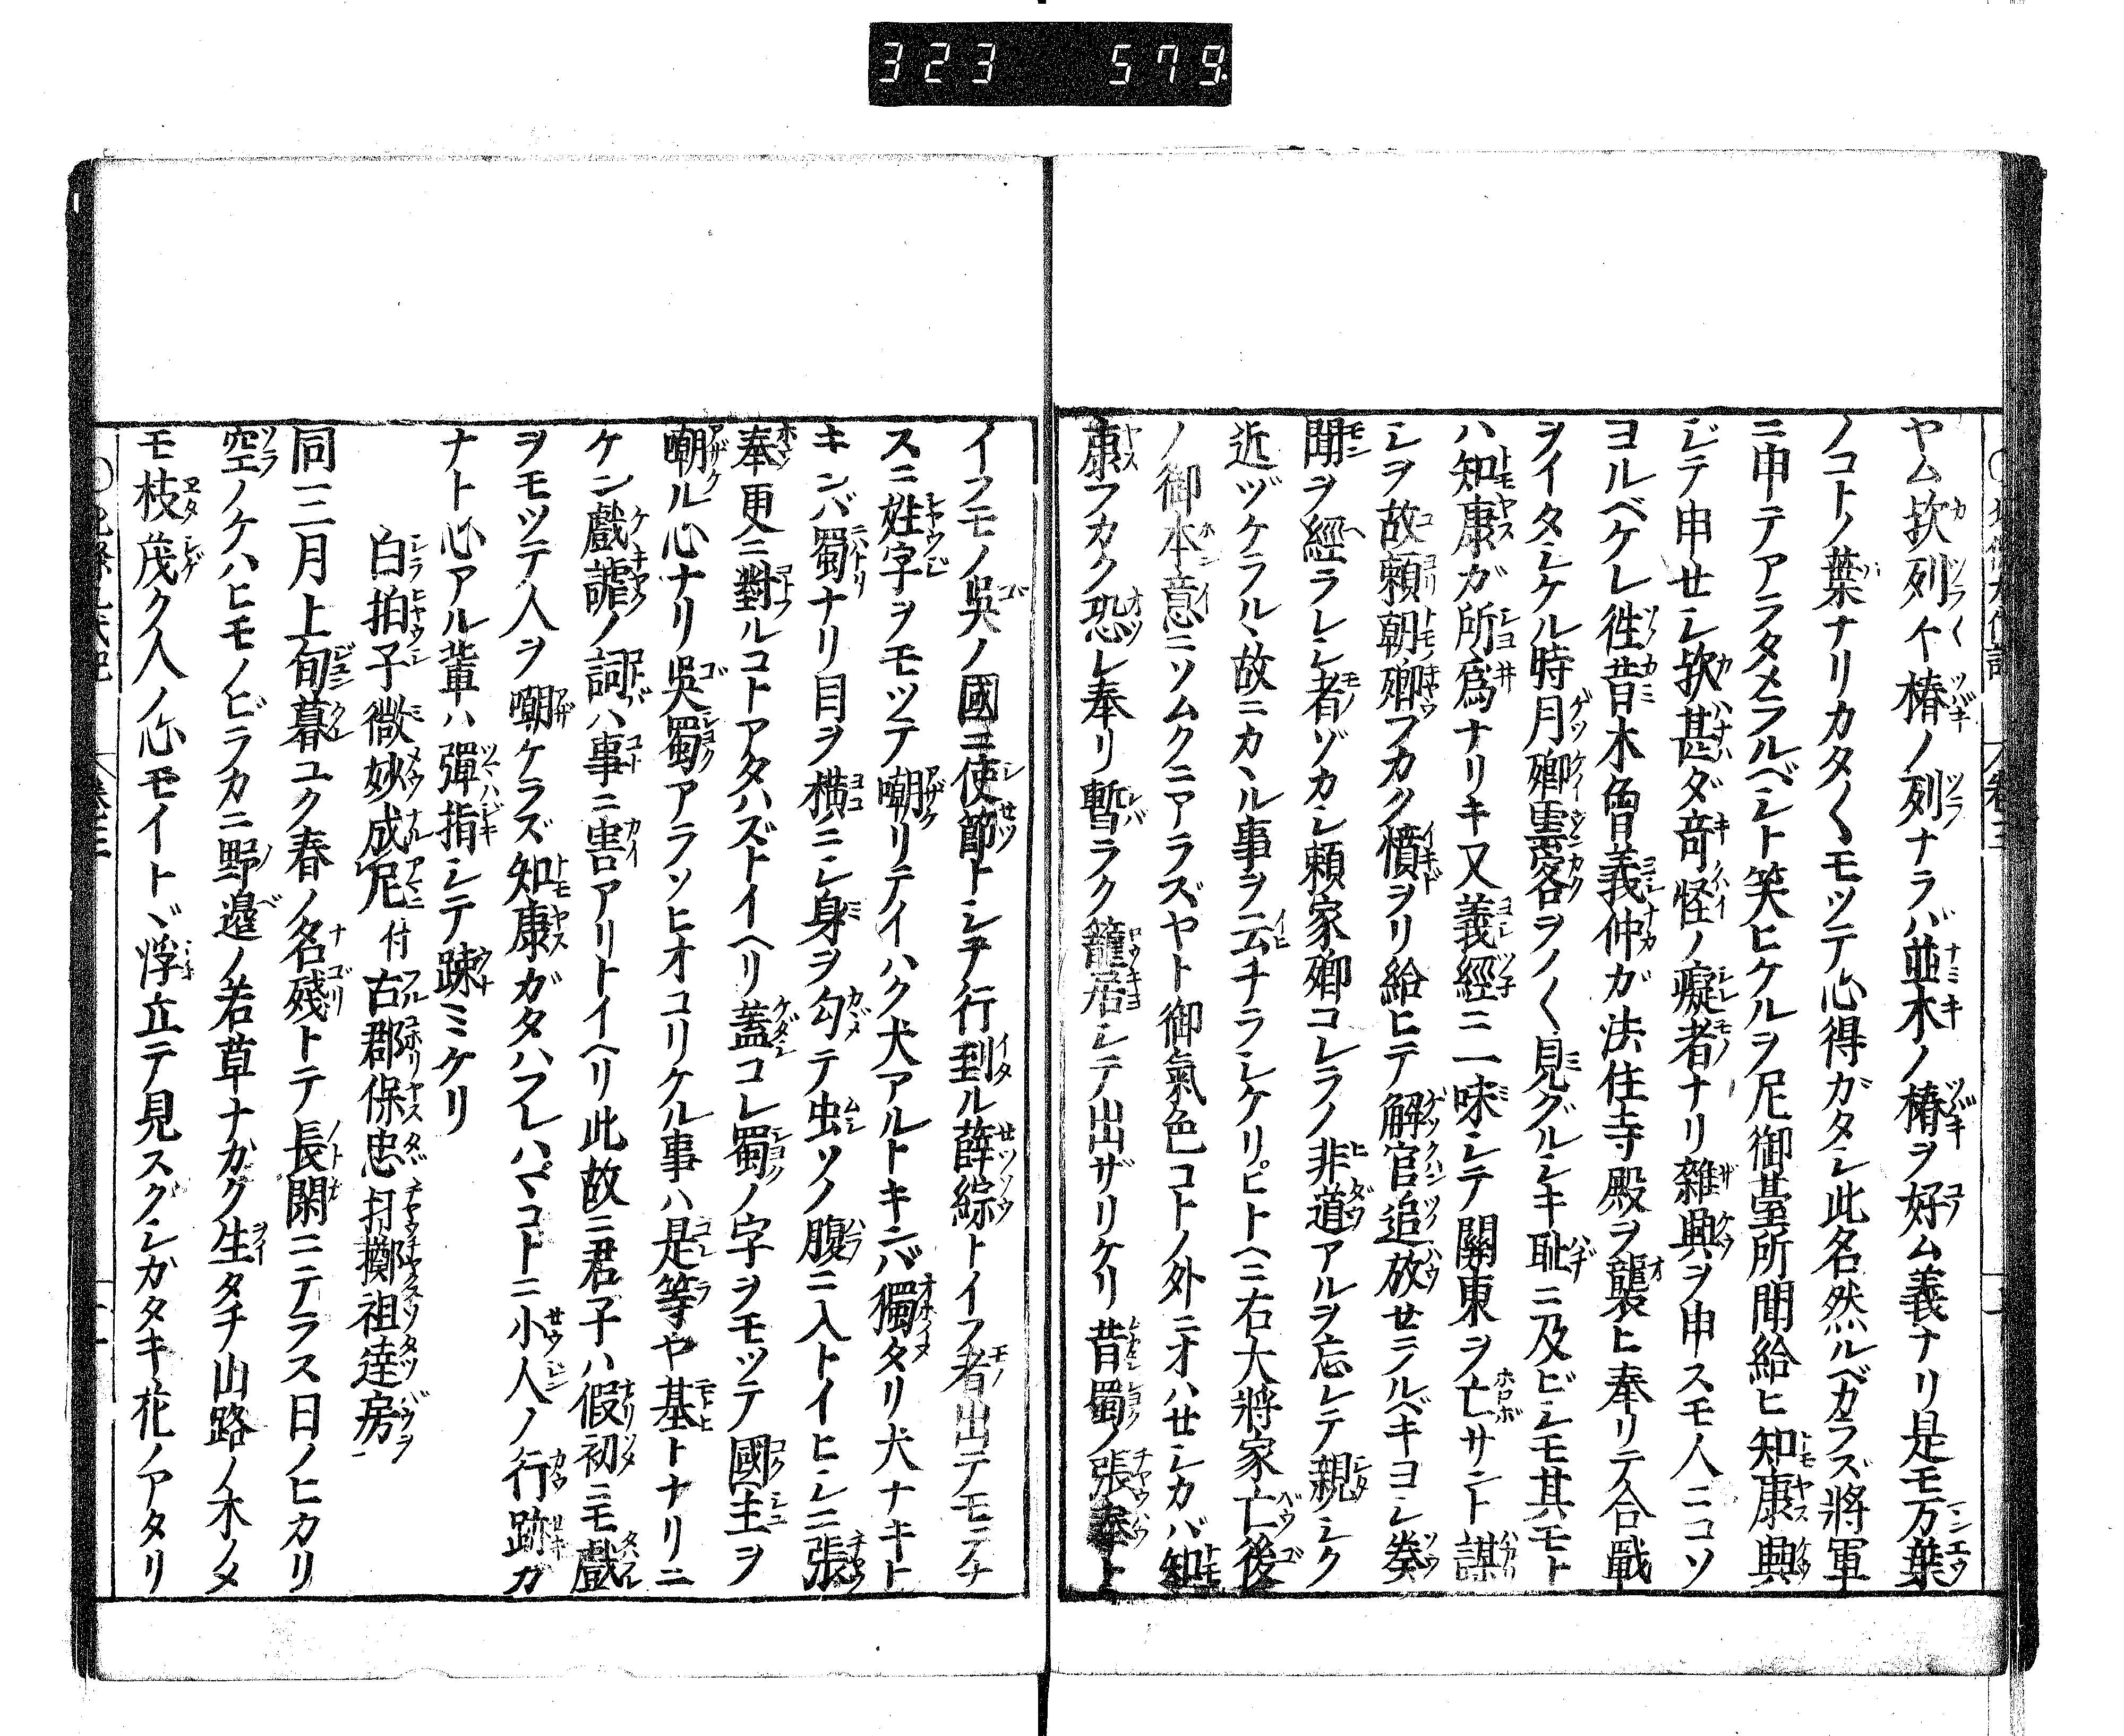 323 579
ヤム欤列〱椿ノ列ナラバ並木ノ椿ヲ好ム義ナリ是モ万葉
ノコトノ葉ナリカタ〱モツテ心得ガタシ此名然ルベカラズ將軍
ニ申テアラタメラルベシト笑ヒケルヲ尼御臺所聞給ヒ知康興
ジテ申セシ欤甚ダ竒怪ノ癡者ナリ雜興ヲ申スモ人ニコソ
ヨルベケレ徃昔木曾義仲ガ法住寺殿ヲ襲ヒ奉リテ合戰
ヲイタシケル時月卿雲客ヲノ〱見グルシキ耻ニ及ビシモ其モト
ハ知康ガ所爲ナリキ又義經ニ一味シテ關東ヲ亡サント謀
シヲ故頼朝卿フカク憤ヲリ給ヒテ解官追放セラルベキヨシ奏
聞ヲ經ラレシ者ゾカシ頼家卿コレラノ非道アルヲ忘レテ親シク
近ヅケラルヽ故ニカヽル事ヲ云チラシケリヒトヘニ右大將家亡後
ノ御本意ニソムクニアラズヤト御氣色コトノ外ニオハセシカバ知
康フカク恐レ奉リ暫ラク籠居シテ出ザリケリ昔蜀ノ張奉ト
イフモノ吳ノ國ニ使節トシテ行到ル薛綜トイフ者出テモテナ
スニ姓字ヲモツテ嘲リテイハク犬アルトキンバ獨タリ犬ナキト
キンバ蜀ナリ目ヲ横ニシ身ヲ勾テ虫ソノ腹ニ入トイヒシニ張
奉更ニ對ルコトアタハズトイヘリ蓋コレ蜀ノ字ヲモツテ國主ヲ
嘲ル心ナリ吳蜀アラソヒオコリケル事ハ是等ヤ基トナリニ
ケン戲謔ノ詞ハ事ニ害アリトイヘリ此故ニ君子ハ假初ニモ戲
ヲモツテ人ヲ嘲ケラズ知康ガタハフレハマコトニ小人ノ行跡ガ
ナト心アル輩ハ彈指シテ疎ミケリ
白拍子微妙成尼 付 古郡保忠打擲祖達房
同三月上旬暮ユク春ノ名殘トテ長閑ニテラス日ノヒカリ
空ノケハヒモノビラカニ野邉ノ若草ナガク生タチ山路ノ木ノメ
モ枝茂ク人ノ心モイトヾ浮立テ見スグシガタキ花ノアタリ